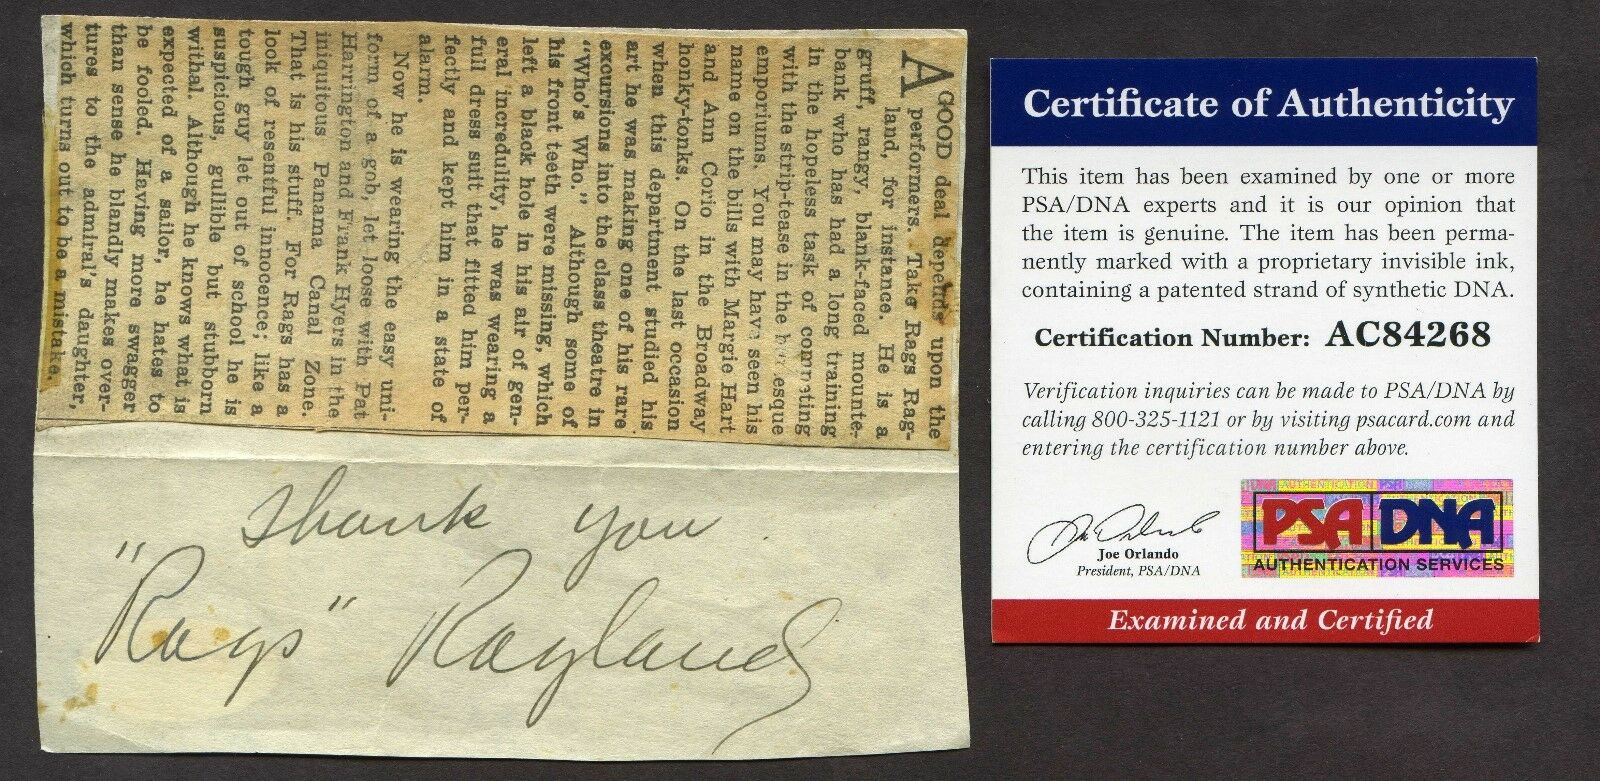 A GOOD deal depends upon the
performers. Take Rags Rag-
land, for instance. He is a
gruff, rangy, blank-faced mounte-
bank who has had a long training
in the hopeless task of competing
with the strip-tease in the burlesque
emporiums. You may have seen his
name on the bills with Margie Hart
and Ann Corio in the Broadway
honky-tonks. On the last occasion
when this department studied his
art he was making one of his rare
excursions into the class theatre in
"Who's Who." Although some of
his front teeth were missing, which
left a black hole in his air of gen-
eral incredulity, he was wearing a
full dress suit that fitted him per-
fectly and kept him in a state of
alarm.
Now he is wearing the easy uni-
form of a gob, let loose with Pat
Harrington and Frank Hyers in the
iniquitous Panama Canal Zone.
That is his stuff. For Rags has a
look of resentful innocence; like a
tough guy let out of school he is
suspicious, gullible but stubborn
withal. Although he knows what is
expected of a sailor, he hates to
be fooled. Having more swagger
than sense he blandly makes over-
tures to the admiral's daughter,
which turns out to be a mistake.
Thank you.
"Rags" Ragland
Certificate of Authenticity
This item has been examined by one or more
PSA/DNA experts and it is our opinion that
the item is genuine. The item has been perma-
nently marked with a proprietary invisible ink,
containing a patented strand of synthetic DNA.
Certification Number: AC84268
Verification inquiries can be made to PSA/DNA by
calling 800-325-1121 or by visiting psacard.com and
entering the certification number above.
Joe Orlando
President, PSA/DNA
PSA DNA
AUTHENTICATION SERVICES
Examined and Certified